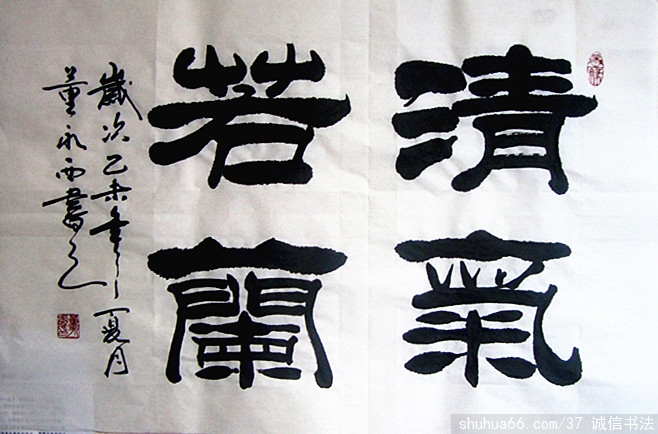 清氣
若蘭
歲次乙未年夏月
董永西書之
shuhua66.com/37 诚信书法